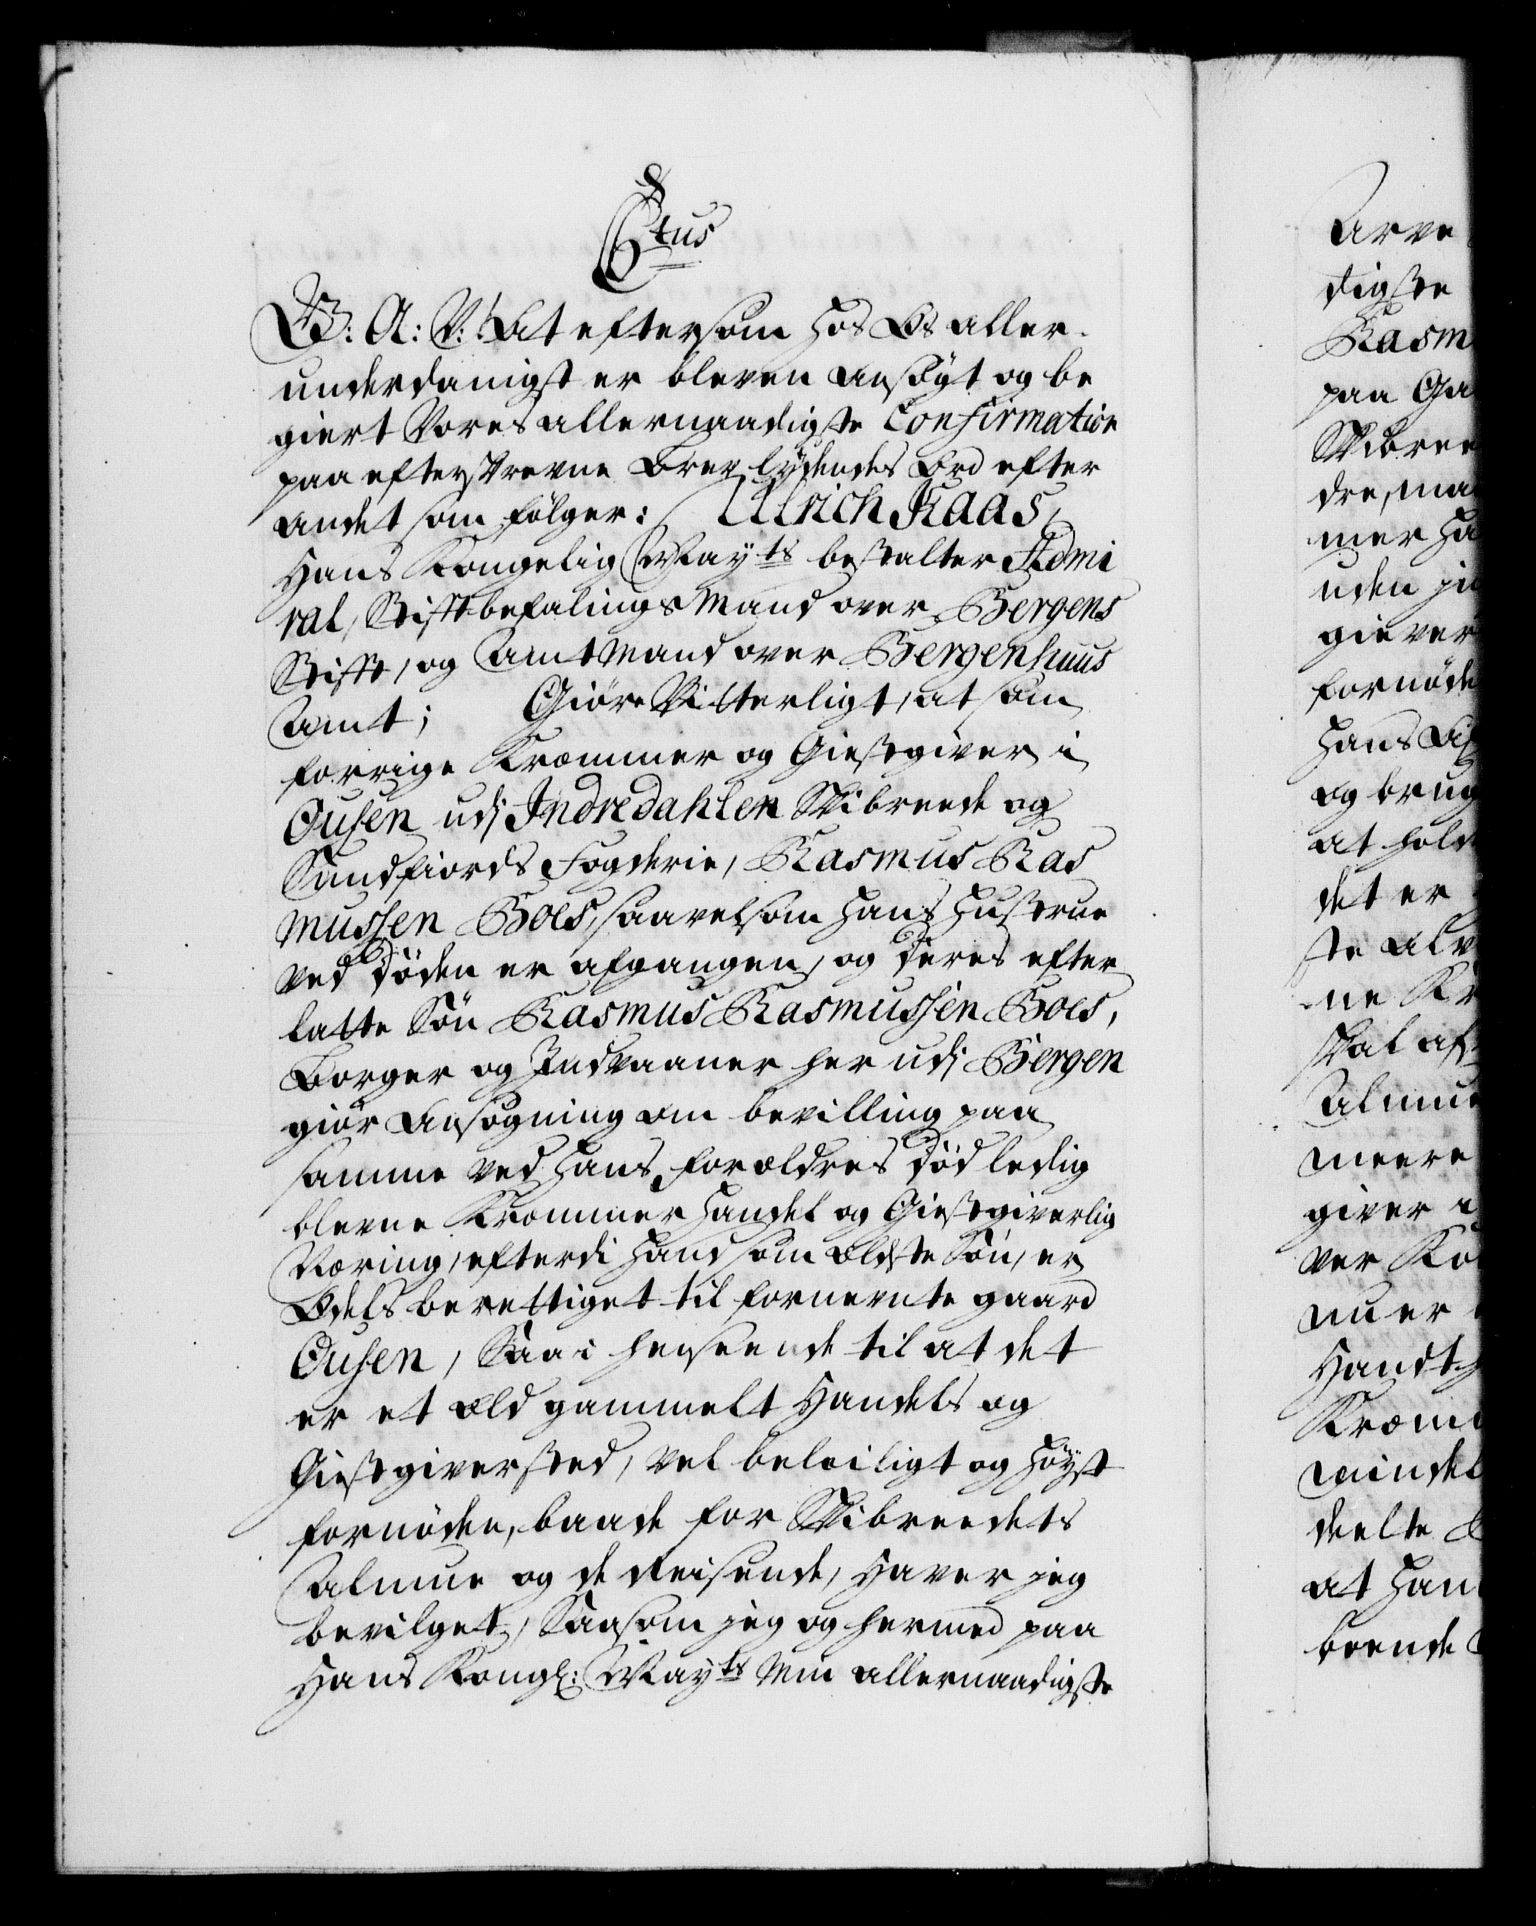 C6tus
G: A: V: At eftersom hos Os aller-
underdanigst er bleven ansøgt og be
giert Vores allernaadigste Confirmation
paa efterskrevne Brev lydendes Ord efter
andet som følger: Ulrich Kaas,
Hans Kongelig Mayts bestalter Admi
ral, Stiftbefalings Mand over Bergens
Stift, og Amtmand over Bergenhuus
Amt; Giøre Vitterligt, at som
forrige Kræmmer og Giestgiver i
Ousen udj Indredahlen Skibreede og
Sundfiords Fogderie, Rasmus Ras
mussen Boes, saavelsom hans Hustrue
ved Døden er afgangen, og deres efter
latte Søn Rasmus Rasmussen Boes,
Borger og Indvaaner her udj Bergen
giør Ansøgning om bevilling paa
samme ved hans forældres død ledig
blevne Kræmmer handel og Giestgiverlig
Næring, efterdi hand som ældste Søn, er
Odels berettiget til fornevnte gaard
Ousen, Saa i henseende til at det
er et æld gammelt Handels og
Giestgiversted, vel beleiligt og høyst
fornøden, baade for Skibreedets
Almue og de Reisende, Haver jeg
bevilget, Saasom jeg og hermed paa
Hans Kongl: Mayts Min allernaadigste
Arve
digste
Rasm
paa Ga
Skibree
dre, ma
mer ha
uden
giver
fornøde
hans
og brug
at hold
det er
ste alv
ne Kr
skal af
Almue
meere
giver i
ver Ko
nu er
Handt
Kræm
mindel
deelte
at han
boende